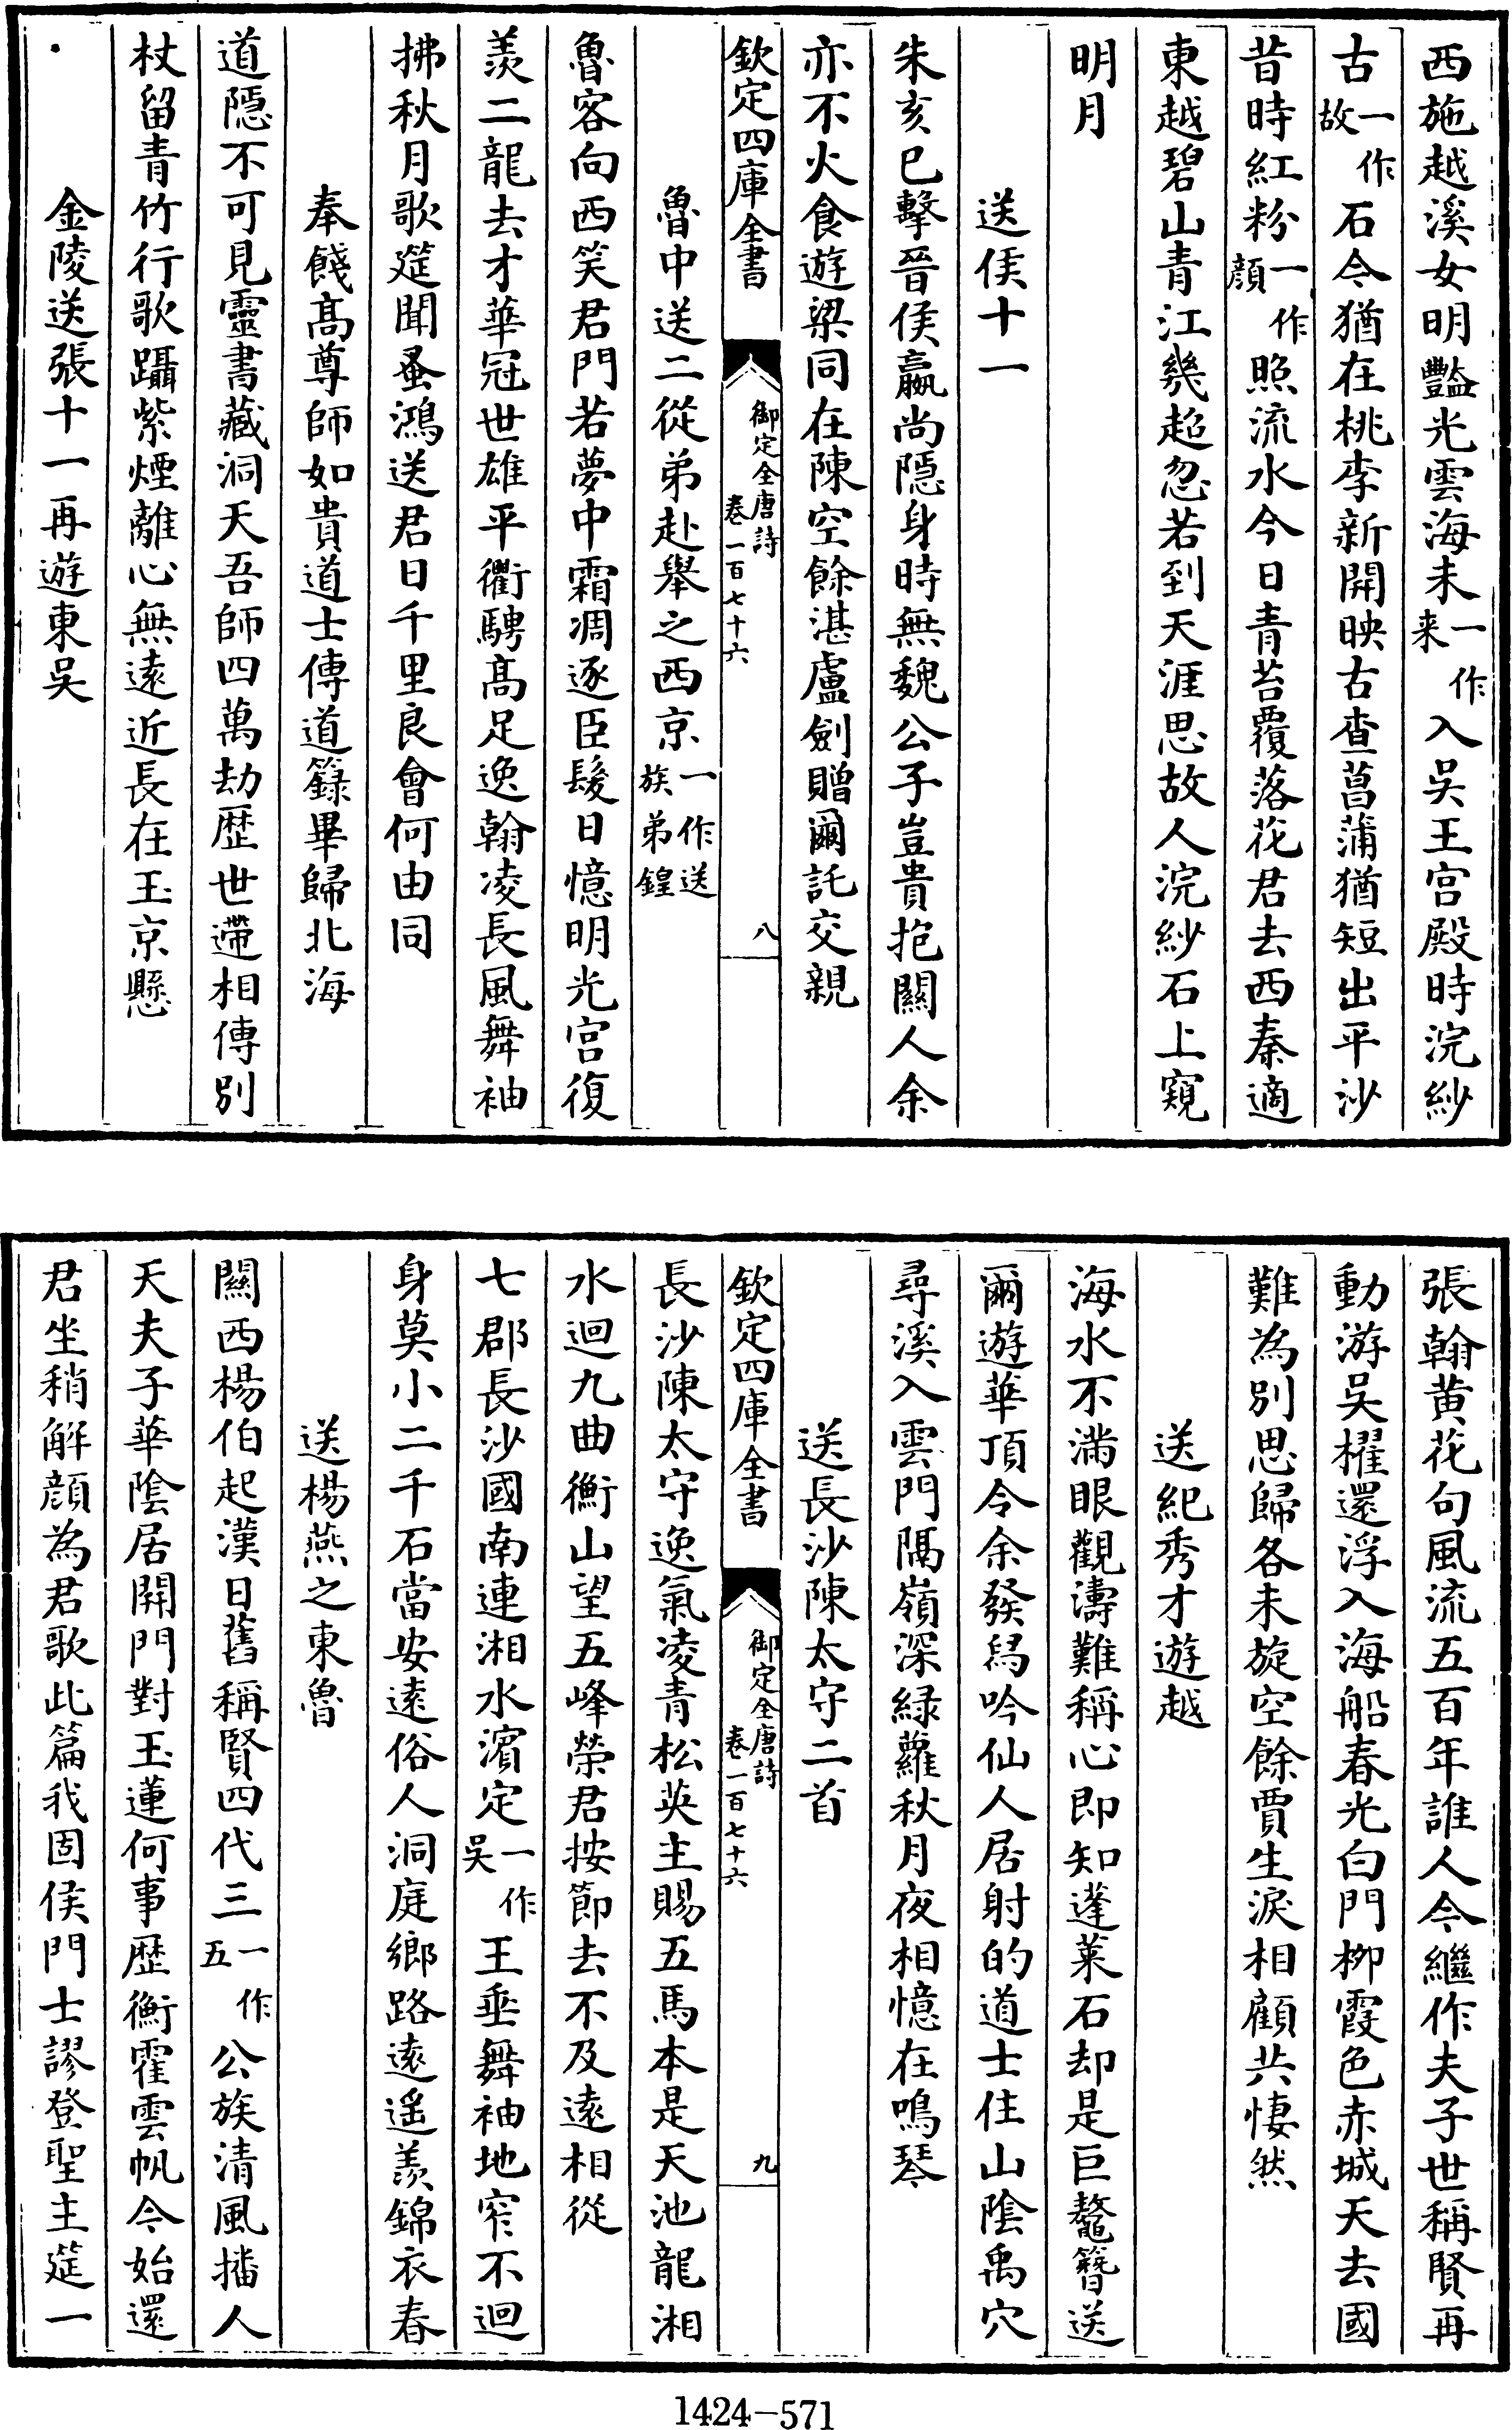 西施越溪女明豔光雲海未一作来入吳王宮殿時浣紗
古一作故石今猶在桃李新開映古查菖蒲猶短出平沙
昔時紅粉一作顔照流水今日青苔覆落花君去西秦適
東越碧山青江幾超忽若到天涯思故人浣紗石上窺
明月
送侯十一
朱亥已擊晉侯嬴尚隱身時無魏公子豈貴抱關人余
亦不火食遊梁同在陳空餘湛盧劍贈爾託交親
欽定四庫全書 御定全唐詩 卷一百七十六 八
魯中送二從弟赴舉之西京一作送族弟鍠
魯客向西笑君門若夢中霜凋逐臣髮日憶明光宮復
羨二龍去才華冠世雄平衢騁高足逸翰凌長風舞袖
拂秋月歌筵聞蚤鴻送君日千里良會何由同
奉餞高尊師如貴道士傳道籙畢歸北海
道隱不可見靈書藏洞天吾師四萬劫歴世遞相傳別
杖留青竹行歌躡紫煙離心無遠近長在玉京懸
金陵送張十一再遊東吳
張翰黄花句風流五百年誰人今繼作夫子世稱賢再
動游吳櫂還浮入海船春光白門栁霞色赤城天去國
難為別思歸各未旋空餘賈生淚相顧共悽然
送紀秀才遊越
海水不滿眼觀濤難稱心即知蓬萊石却是巨鼇簪送
爾遊華頂令余發舄吟仙人居射的道士住山陰禹穴
尋溪入雲門隔嶺深緑蘿秋月夜相憶在鳴琴
送長沙陳太守二首
欽定四庫全書 御定全唐詩 卷一百七十六 九
長沙陳太守逸氣凌青松英主賜五馬本是天池龍湘
水迴九曲衡山望五峰榮君按節去不及遠相從
七郡長沙國南連湘水濱定一作吳王垂舞袖地窄不迴
身莫小二千石當安遠俗人洞庭鄉路遠遥羨錦衣春
送楊燕之東魯
關西楊伯起漢日舊稱賢四代三一作五公族清風播人
天夫子華陰居開門對玉蓮何事歴衡霍雲帆今始還
君坐稍解顔為君歌此篇我固侯門士謬登聖主筵一
1424-571